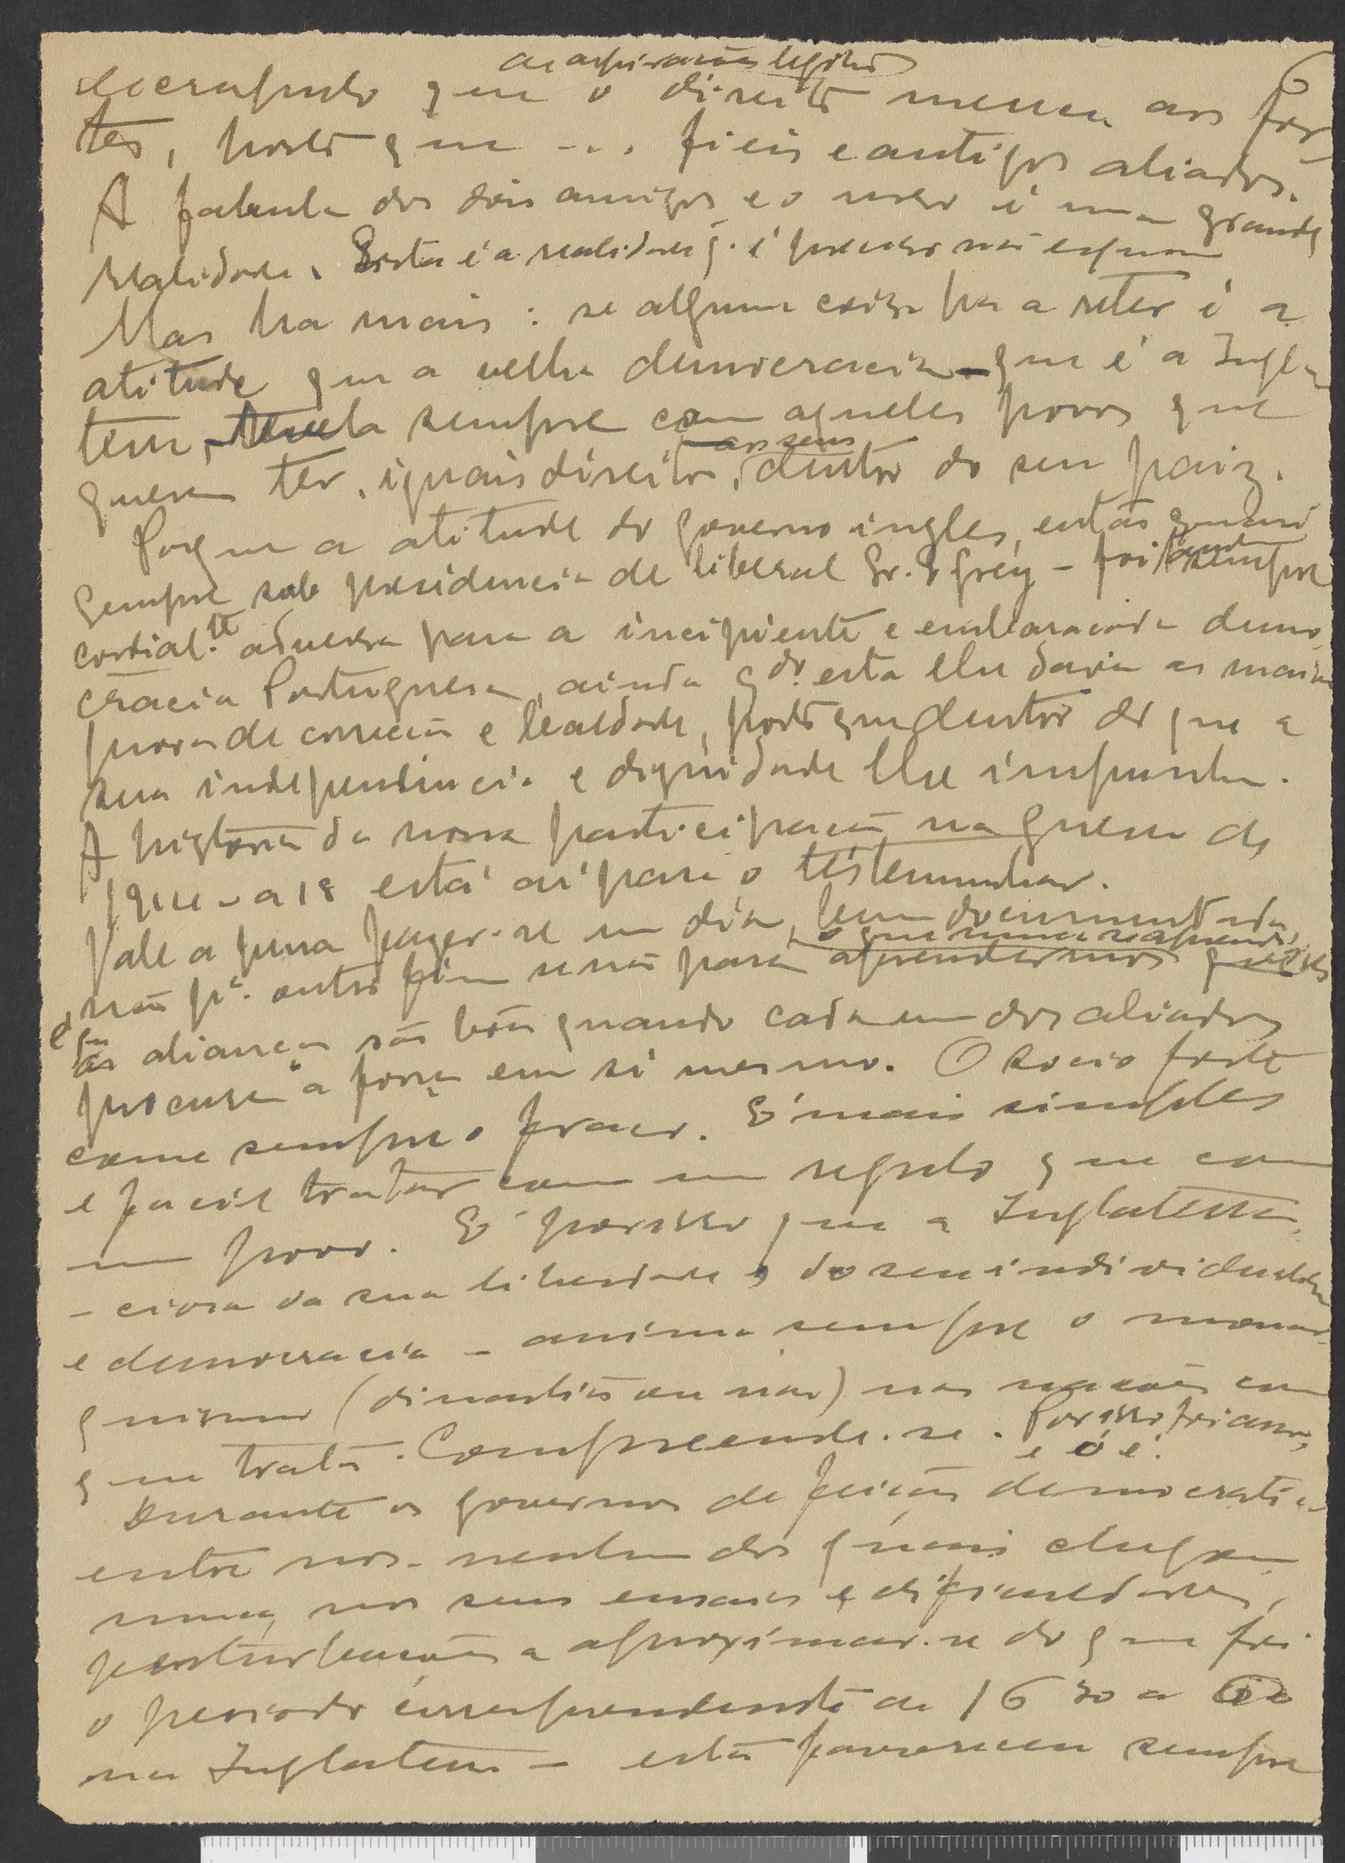 6
as aspirações legitimas
que o direito aos for-
tes, posto que ... fieis e antigos aliados.
A fabula dos dois amigos e o urso é uma grande
realidade. Esta é a realidade q. é preciso não esquecer
Mas ha mais: se alguma coisa ha a reter é a
atitude que a velha democracia que é a Ingla-
terra, sempre com aqueles povos que
querem ter, iguais direitos, aos seus dentro do seu paiz.
Porque a atitude do governo ingles, então quasi
sempre sob presidencia de liberal Sr. E Grey - foi sempre
cordial.te adversa para a incipiente e embaraçada demo-
cracia Portuguesa, ainda q.do esta lhe dava as maiores
provas de correcção e lealdade, posto que dentro do que a
sua independencia e dignidade lhe impunha.
A historia da nossa participação na Guerra de
1914 a 18 está aí para o testemunhar.
Vale a pena fazer-se um dia, bem documentada
não p.ª outro fim senão para aprendermos
e que as alianças são bôas quando cada um dos aliados
procura a força em si mesmo. O socio forte
come sempre o fraco. É mais simples
e facil tratar com um regulo que com
um povo. É por isso que a Inglaterra,
- ciosa da sua liberdade, do seu individualismo
e democracia - anima sempre o monar-
quismo (dinastico ou não) nas nações com
que trata. Compreende-se. Por isso foi assim,
e o é.
Durante os governos de feição democratica
entre nós - nenhum dos quais chegou
nunca, nos seus e dificuldades,
perturbações a aproximar-se do que foi
o periodo correspondente de 1630 a
na Inglaterra - esta sempre